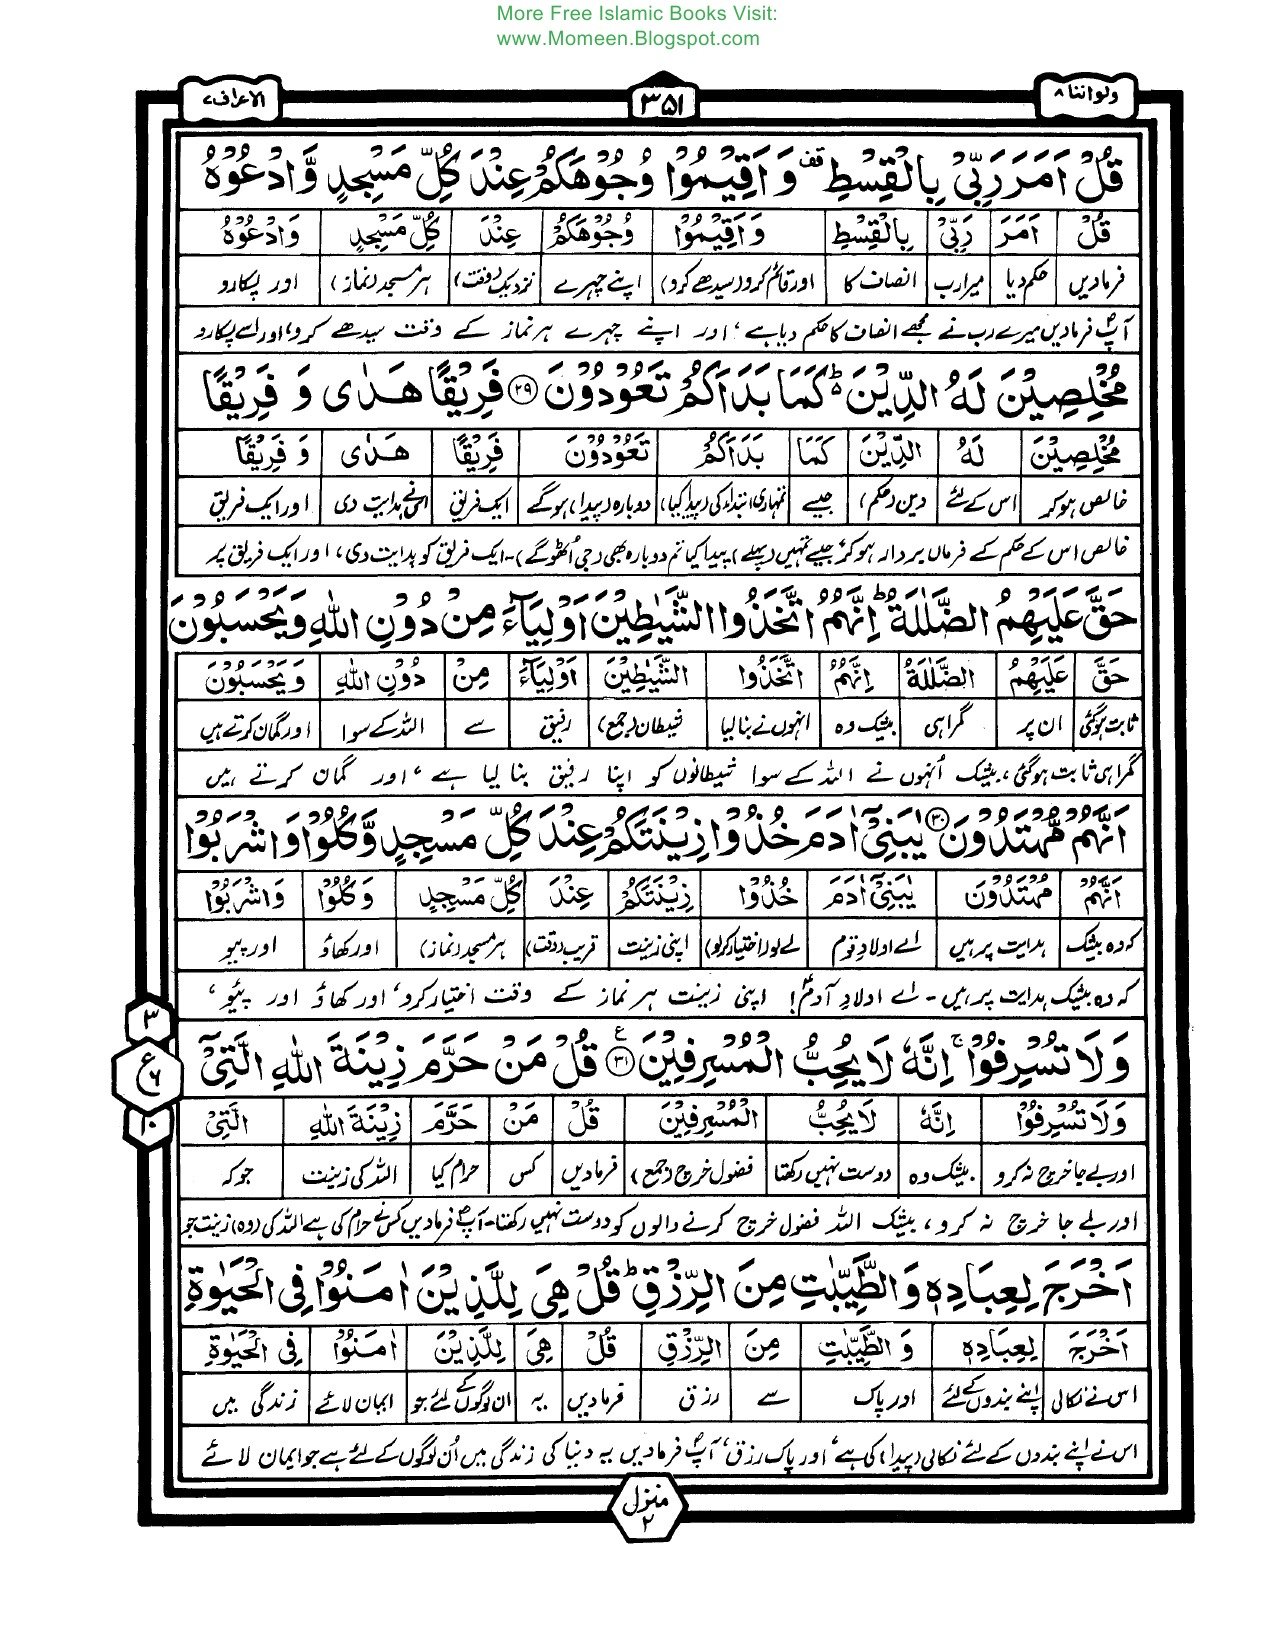 More Free Islamic Books Visit:
www.Momeen.Blogspot.com
ولواننا ۸
۳۵۱
الاعراف ۷
قُلْ اَمَرَ رَبِّیْ بِالْقِسْطِ قف وَ اَقِیْمُوْا وُجُوْهَكُمْ عِنْدَ كُلِّ مَسْجِدٍ وَّ ادْعُوْهُ
قُلْ اَمَرَ رَبِّیْ بِالْقِسْطِ وَ اَقِیْمُوْا وُجُوْهَكُمْ عِنْدَ كُلِّ مَسْجِدٍ وَ ادْعُوْهُ
فرمادیں حکم دیا میرا رب انصاف کا اور قائم کرو (سیدھے کرو) اپنے چہرے نزدیک (وقت) ہر مسجد (نماز) اور پکارو
آپؐ فرمادیں میرے رب نے مجھے انصاف کا حکم دیا ہے، اور اپنے چہرے ہر نماز کے وقت سیدھے کرو، اور اسے پکارو
مُخْلِصِیْنَ لَهُ الدِّیْنَ ؕ كَمَا بَدَاَكُمْ تَعُوْدُوْنَ ﴿۲۹﴾ فَرِیْقًا هَدٰی وَ فَرِیْقًا
مُخْلِصِیْنَ لَهُ الدِّیْنَ كَمَا بَدَاَكُمْ تَعُوْدُوْنَ فَرِیْقًا هَدٰی وَ فَرِیْقًا
خالص ہوکر اس کے لئے دین (حکم) جیسے تمہاری ابتداء کی (پیدا کیا) دوبارہ (پیدا) ہوگے ایک فریق اس نے ہدایت دی اور ایک فریق
خالص اس کے حکم کے فرماں بردار ہوکر، جیسے تمہیں (پہلے) پیدا کیا تم دوبارہ بھی (جی اُٹھوگے)۔ ایک فریق کو ہدایت دی، اور ایک فریق پر
حَقَّ عَلَیْهِمُ الضَّلٰلَةُ ؕ اِنَّهُمُ اتَّخَذُوا الشَّیٰطِیْنَ اَوْلِیَآءَ مِنْ دُوْنِ اللهِ وَ یَحْسَبُوْنَ
حَقَّ عَلَیْهِمُ الضَّلٰلَةُ اِنَّهُمُ اتَّخَذُوا الشَّیٰطِیْنَ اَوْلِیَآءَ مِنْ دُوْنِ اللهِ وَ یَحْسَبُوْنَ
ثابت ہوگئی ان پر گمراہی بیشک وہ انہوں نے بنالیا شیطان (جمع) رفیق سے اللہ کے سوا اور گمان کرتے ہیں
گمراہی ثابت ہوگئی، بیشک اُنہوں نے اللہ کے سوا شیطانوں کو اپنا رفیق بنا لیا ہے، اور گمان کرتے ہیں
اَنَّهُمْ مُّهْتَدُوْنَ ﴿۳۰﴾ یٰبَنِیْۤ اٰدَمَ خُذُوْا زِیْنَتَكُمْ عِنْدَ كُلِّ مَسْجِدٍ وَّ كُلُوْا وَ اشْرَبُوْا
اَنَّهُمْ مُّهْتَدُوْنَ یٰبَنِیْۤ اٰدَمَ خُذُوْا زِیْنَتَكُمْ عِنْدَ كُلِّ مَسْجِدٍ وَ كُلُوْا وَ اشْرَبُوْا
کہ وہ بیشک ہدایت پر ہیں اے اولادِ آدم لے لو (اختیار کرلو) اپنی زینت قریب (وقت) ہر مسجد (نماز) اور کھاؤ اور پیو
کہ وہ بیشک ہدایت پر ہیں۔ اے اولادِ آدمؑ! اپنی زینت ہر نماز کے وقت اختیار کرو، اور کھاؤ اور پیئو،
وَ لَا تُسْرِفُوْا ۚ اِنَّهٗ لَا یُحِبُّ الْمُسْرِفِیْنَ ﴿۳۱﴾ ع قُلْ مَنْ حَرَّمَ زِیْنَةَ اللهِ الَّتِیْۤ
۳
ع ۶
۱۰
وَ لَا تُسْرِفُوْا اِنَّهٗ لَا یُحِبُّ الْمُسْرِفِیْنَ قُلْ مَنْ حَرَّمَ زِیْنَةَ اللهِ الَّتِیْ
اور بے جا خرچ نہ کرو بیشک وہ دوست نہیں رکھتا فضول خرچ (جمع) فرمادیں کس حرام کیا اللہ کی زینت جو کہ
اور بے جا خرچ نہ کرو، بیشک اللہ فضول خرچ کرنے والوں کو دوست نہیں رکھتا۔ آپؐ فرمادیں کس نے حرام کی ہے اللہ کی (وہ) زینت جو
اَخْرَجَ لِعِبَادِهٖ وَ الطَّیِّبٰتِ مِنَ الرِّزْقِ ؕ قُلْ هِیَ لِلَّذِیْنَ اٰمَنُوْا فِی الْحَیٰوةِ
اَخْرَجَ لِعِبَادِهٖ وَ الطَّیِّبٰتِ مِنَ الرِّزْقِ قُلْ هِیَ لِلَّذِیْنَ اٰمَنُوْا فِی الْحَیٰوةِ
اس نے نکالی اپنے بندوں کے لئے اور پاک سے رزق فرمادیں یہ ان لوگوں کے لئے جو ایمان لائے زندگی میں
اس نے اپنے بندوں کے لئے نکالی (پیدا) کی ہے، اور پاک رزق، آپؐ فرمادیں یہ دنیا کی زندگی میں اُن لوگوں کے لئے ہے جو ایمان لائے
منزل ۲